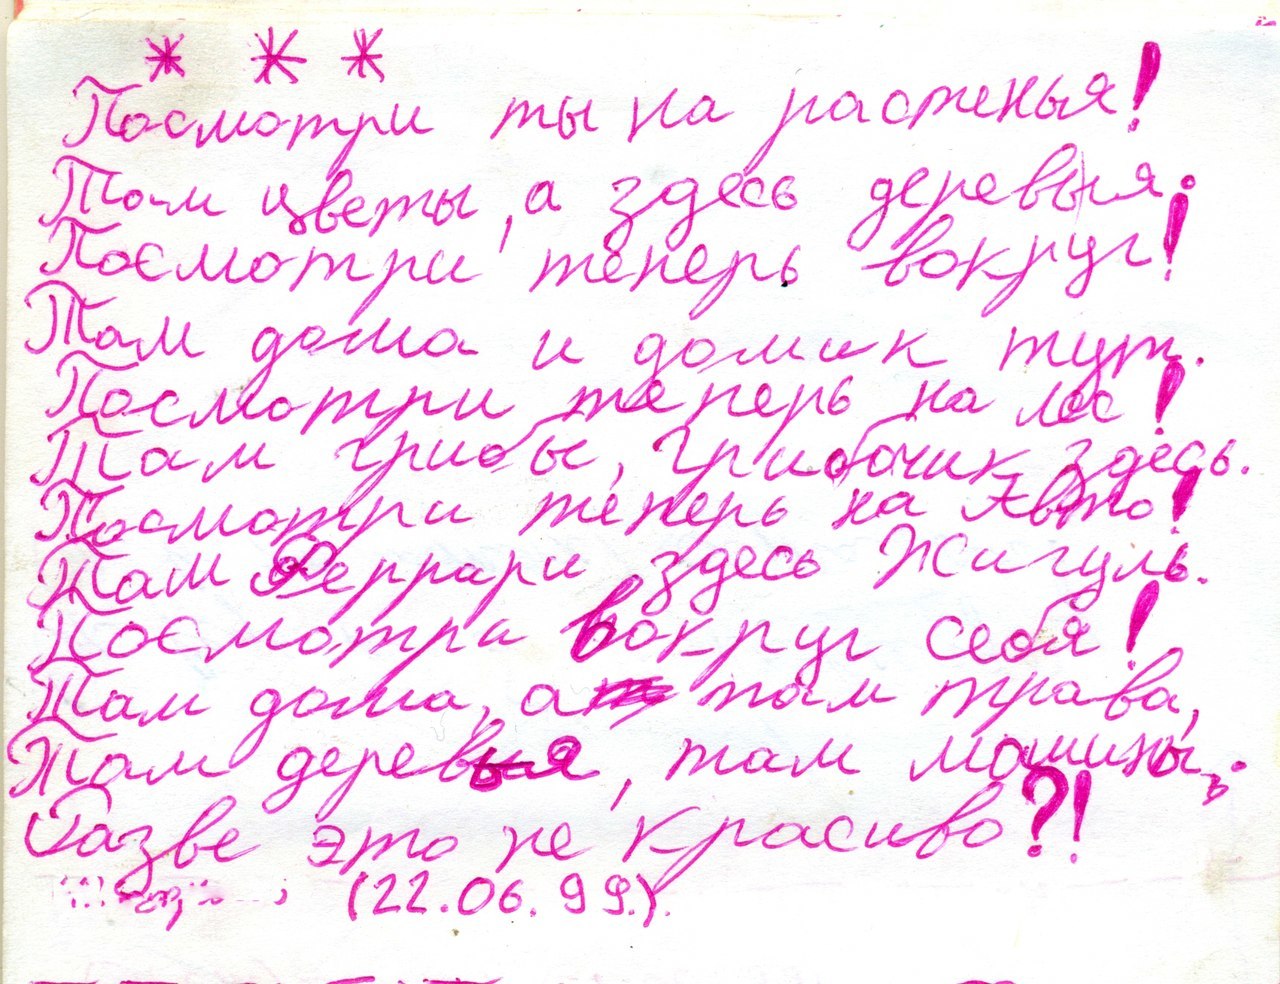 * * *
Посмотри ты на растенья!
Там цветы, а здесь деревья.
Посмотри теперь вокруг!
Там дома и домик тут.
Посмотри теперь на лес!
Там грибы, грибочик здесь.
Посмотри теперь на Авто!
Там Феррари здесь Жигуль.
Посмотри вокруг себя!
Там дома, а там трава,
Там деревья, там машины.
Разве это не красиво?!
(22.06.99.).